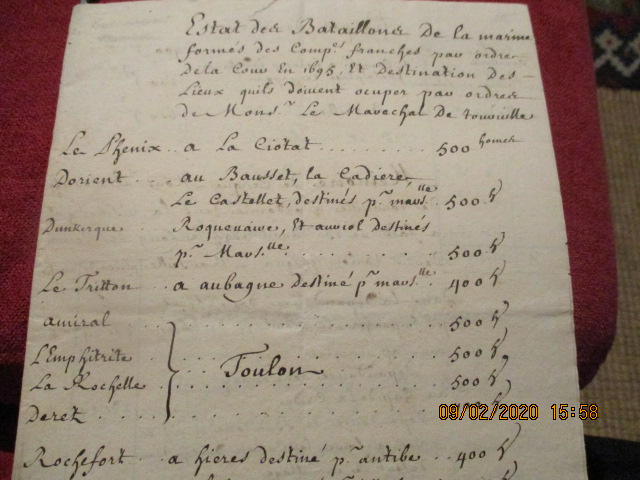 Estat des Bataillons De la marine
formés des Comp.es franches par ordre
De la Cour En 1695, Et Destination des
Lieux quils doivent ocuper par ordre
de Mons.r Le Marechal De Tourville
Le Phenix .. a La Ciotat .......... 500 homes
Dorient ... au Bausset, la Cadiere,
Le Castellet, destinés p.r mars.lle . 500 h
Dunkerque ... Roquevaire, Et auriol destinés
p.r Mars.lle ......... 500 h
Le Tritton ... a aubagne destiné p.r mars.lle .. 400 h
amiral ... 500 h
L'Emphitrite ... 500 h
Toulon
La Rochelle ... 500 h
Deretz ...
Rochefort .. a hieres destiné p.r antibe .. 400 h
09/02/2020 15:58